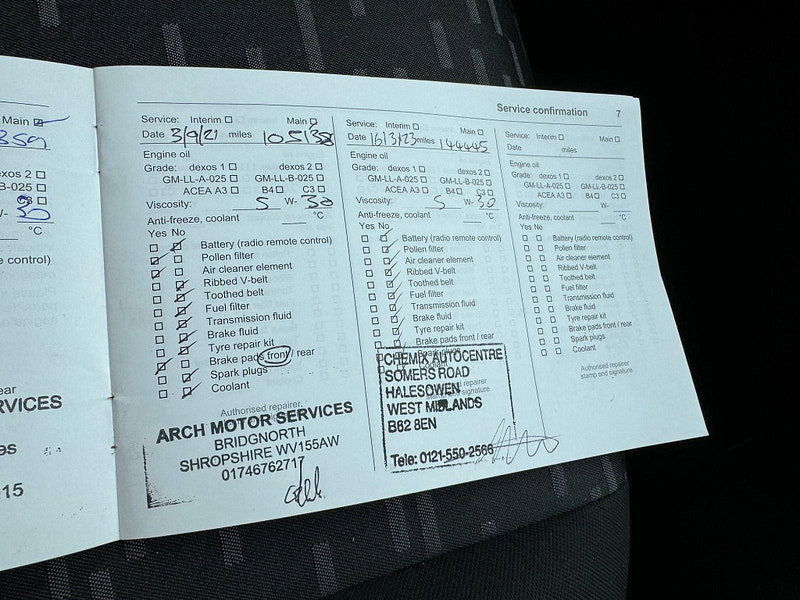 Service confirmation 7
Main
xos 2
B-025
C3
W- 30
°C
e control)
ear
RVICES
15
Service: Interim Main
Date 3/9/21 miles 105138
Engine oil
Grade: dexos 1 dexos 2
GM-LL-A-025 GM-LL-B-025
ACEA A3 B4 C3
Viscosity: 5 W- 30
Anti-freeze, coolant °C
Yes No
Battery (radio remote control)
Pollen filter
Air cleaner element
Ribbed V-belt
Toothed belt
Fuel filter
Transmission fluid
Brake fluid
Tyre repair kit
Brake pads front / rear
Spark plugs
Coolant
Authorised repairer
ARCH MOTOR SERVICES
BRIDGNORTH
SHROPSHIRE WV155AW
01746762717
Service: Interim Main
Date 16/3/23 miles 144445
Engine oil
Grade: dexos 1 dexos 2
GM-LL-A-025 GM-LL-B-025
ACEA A3 B4 C3
Viscosity: 5 W- 30
Anti-freeze, coolant °C
Yes No
Battery (radio remote control)
Pollen filter
Air cleaner element
Ribbed V-belt
Toothed belt
Fuel filter
Transmission fluid
Brake fluid
Tyre repair kit
Brake pads front / rear
Spark plugs
CHEMIX AUTOCENTRE
SOMERS ROAD
HALESOWEN
WEST MIDLANDS
B62 8EN
Tele: 0121-550-2566
repairer
signature
Service: Interim Main
Date miles
Engine oil
Grade: dexos 1 dexos 2
GM-LL-A-025 GM-LL-B-025
ACEA A3 B4 C3
Viscosity: W-
Anti-freeze, coolant °C
Yes No
Battery (radio remote control)
Pollen filter
Air cleaner element
Ribbed V-belt
Toothed belt
Fuel filter
Transmission fluid
Brake fluid
Tyre repair kit
Brake pads front / rear
Spark plugs
Coolant
Authorised repairer
stamp and signature